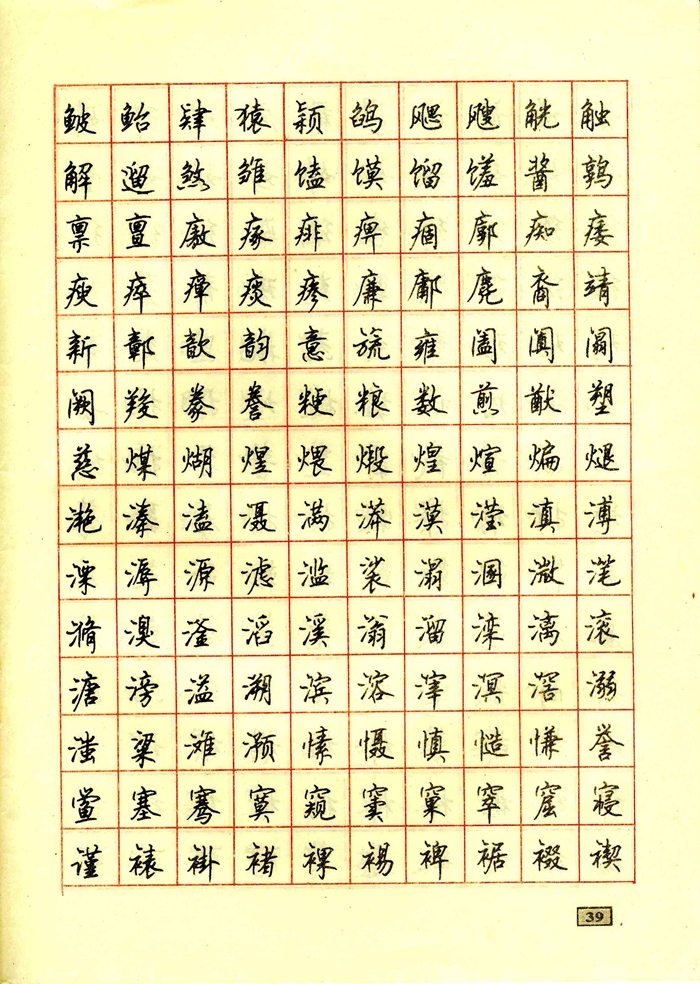 鲏鲐肄猿颖鹐飔飕觥触
解遛煞雏馌馍馏馐酱鹑
禀亶廒瘃痱痹痼廓痴痿
瘐瘁瘅痰瘆廉鄘麂裔靖
新鄣歆韵意旒雍阖阗阘
阙羧豢誊粳粮数煎猷塑
慈煤煳煜煨煅煌煊煸煺
滟溱溘滠满漭漠滢滇溥
溧溽源滤滥裟溻溷溦滗
滫溴滏滔溪滃溜滦漓滚
溏滂溢溯滨溶滓溟滘溺
滍粱滩滪愫慑慎慥慊誉
鲎塞骞寞窥窦窠窣窟寝
谨裱褂褚裸裼裨裾裰禊
39